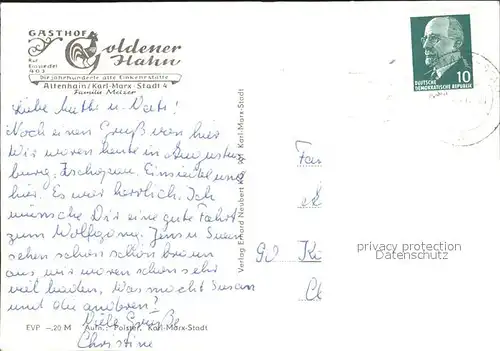 GASTHOF
Goldener
Hahn
Ruf
Einsiedel
403
Die jahrhunderte alte Einkehrstätte
Altenhain/Karl-Marx-Stadt 4
Familie Melzer
DEUTSCHE
DEMOKRATISCHE REPUBLIK
10
Liebe Mutti u. Vati!
Noch einen Gruß von hier
Wir waren heute in Augustus-
burg, Zschopau, Einsiedel und
hier. Es war herrlich. Ich
wünsche Dir eine gute Fahrt
zum Wolfgang. Jens u. Susan
sehen schon schön braun
aus wir waren schon sehr
viel baden. Was macht Susan
und die anderen?
Viele Grüße
Christine
Verlag Erhard Neubert KG Karl-Marx-Stadt
90
privacy protection
Datenschutz
EVP –,20 M Aufn.: Polster, Karl-Marx-Stadt